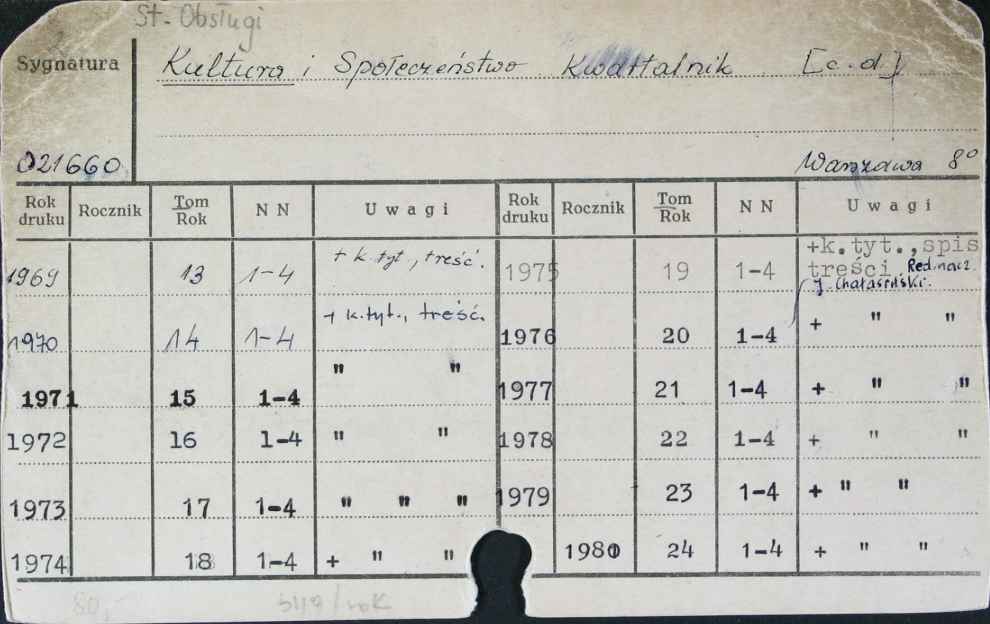 St. Obsługi
Sygnatura
Kultura i Społeczeństwo Kwartalnik [c.d]
021660
Warszawa 8°
Rok druku Rocznik Tom Rok N N Uwagi Rok druku Rocznik Tom Rok N N Uwagi
1969 13 1-4 + k.tyt., treść. 1975 19 1-4 +k.tyt.,spis treści Red.nacz. J. Chałasiński.
1970 14 1-4 + k.tyt., treść. 1976 20 1-4 + " "
1971 15 1-4 " " 1977 21 1-4 + " "
1972 16 1-4 " " 1978 22 1-4 + " "
1973 17 1-4 " " " 1979 23 1-4 + " "
1974 18 1-4 + " " 1980 24 1-4 + " "
80,-
/rok